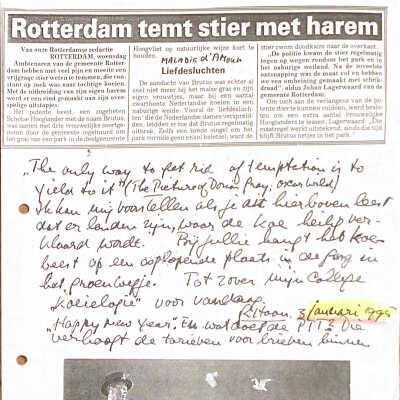 Rotterdam temt stier met harem
Van onze Rotterdamse redactie
ROTTERDAM, woensdag
Ambtenaren van de gemeente Rotter-
dam hebben met veel pijn en moeite een
vrijage stier weten te temmen, die con-
stant op zoek was naar tochtige koeien.
Met de uitbreiding van zijn eigen harem
werd er een eind gemaakt aan zijn over-
spelige uitstapjes.
Het potente beest, een zogeheten
Schotse Hooglander met de naam Brutus,
was samen met drie vrouwelijke soortge-
noten door de gemeente ingehuurd om
het gras van een park in de deelgemeente
Hoogvliet op natuurlijke wijze kort te
houden.
MALADIE d'AMOUR
Liefdesluchten
De aandacht van Brutus was echter al
snel niet meer bij het malse gras en zijn
eigen vrouwtjes, maar bij een aantal
zwartbonte Nederlandse koeien in een
naburige weide. Vooral de 'liefdesluch-
ten' die de Nederlandse dames verspreid-
den als ze tochtig waren lokte Brutus
uit. Zelfs een brede singel om het
park vormde geen enkel beletsel, want de
stier zwom doodleuk naar de overkant.
„De politie kwam de stier regelmatig
tegen op wegen rondom het park en in
het naburige weiland. Na de zoveelste
ontsnapping was de maat vol en hebben
we een omheining gemaakt met schrik-
draad", aldus Johan Lagerwaard van de
gemeente Rotterdam.
Om toch aan de verlangens van de po-
tente stier te kunnen voldoen, werd beslo-
ten om een extra aantal vrouwelijke
Hooglanders in te zetten. Lagerwaard: „De
maatregel werkt uitstekend, sinds die tijd
blijft Brutus netjes in het park."
„The only way to get rid of temptation is to
yield to it" (The Picture of Dorian Gray, Oscar Wilde)
Ik kan mij voorstellen als je dit hierboven leest
dat er landen zijn, waar de koe heilig ver-
klaard wordt. Bij jullie hangt het koe-
beest op een oplopende plaats in de gang in
het groen wegje. Tot zover mijn college
"Koeielogie" voor vandaag.
3 januari 1995
"Happy New Year". En wat doet de PTT? Die
verhoogt de tarieven voor brieven binnen